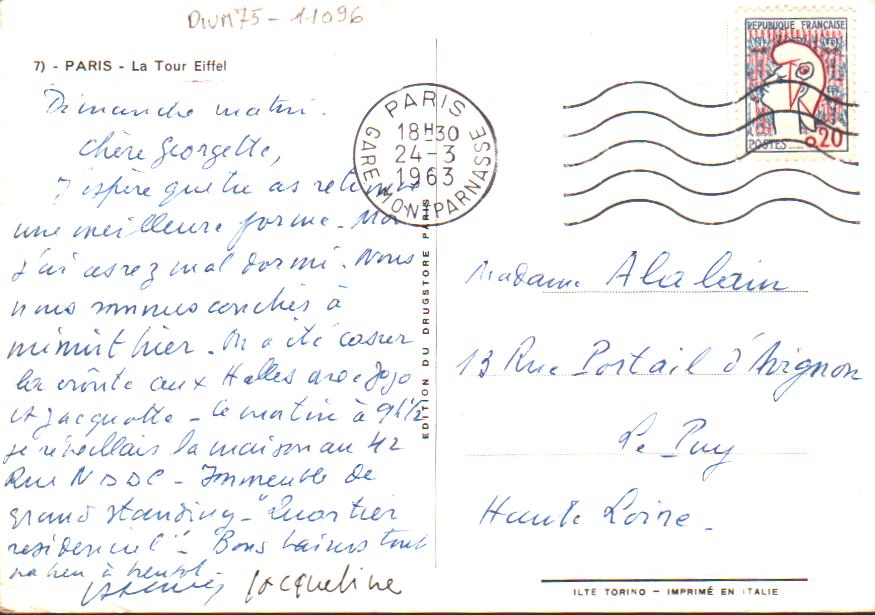 DIVM75-11096
7) - PARIS - La Tour Eiffel
Dimanche matin.
Chère Georgette,
J'espère que tu as retrouvé
une meilleure forme. Moi
j'ai assez mal dormi. Nous
nous sommes couchés à
minuit hier. On a été casser
la croûte aux Halles avec Jojo
et Jacquotte - Ce matin à 9h 1/2
je réveillais la maison au 42
Rue N D D C - Immeuble de
grand standing - "Quartier
résidenciel" - Bons baisers tout
à bientôt
Jacqueline
EDITION DU DRUGSTORE PARIS
PARIS
18H30
24-3
1963
GARE MONTPARNASSE
REPUBLIQUE FRANÇAISE
POSTES 0,20
Madame Alalain
13 Rue Portail d'Avignon
Le Puy
Haute Loire -
ILTE TORINO - IMPRIMÉ EN ITALIE